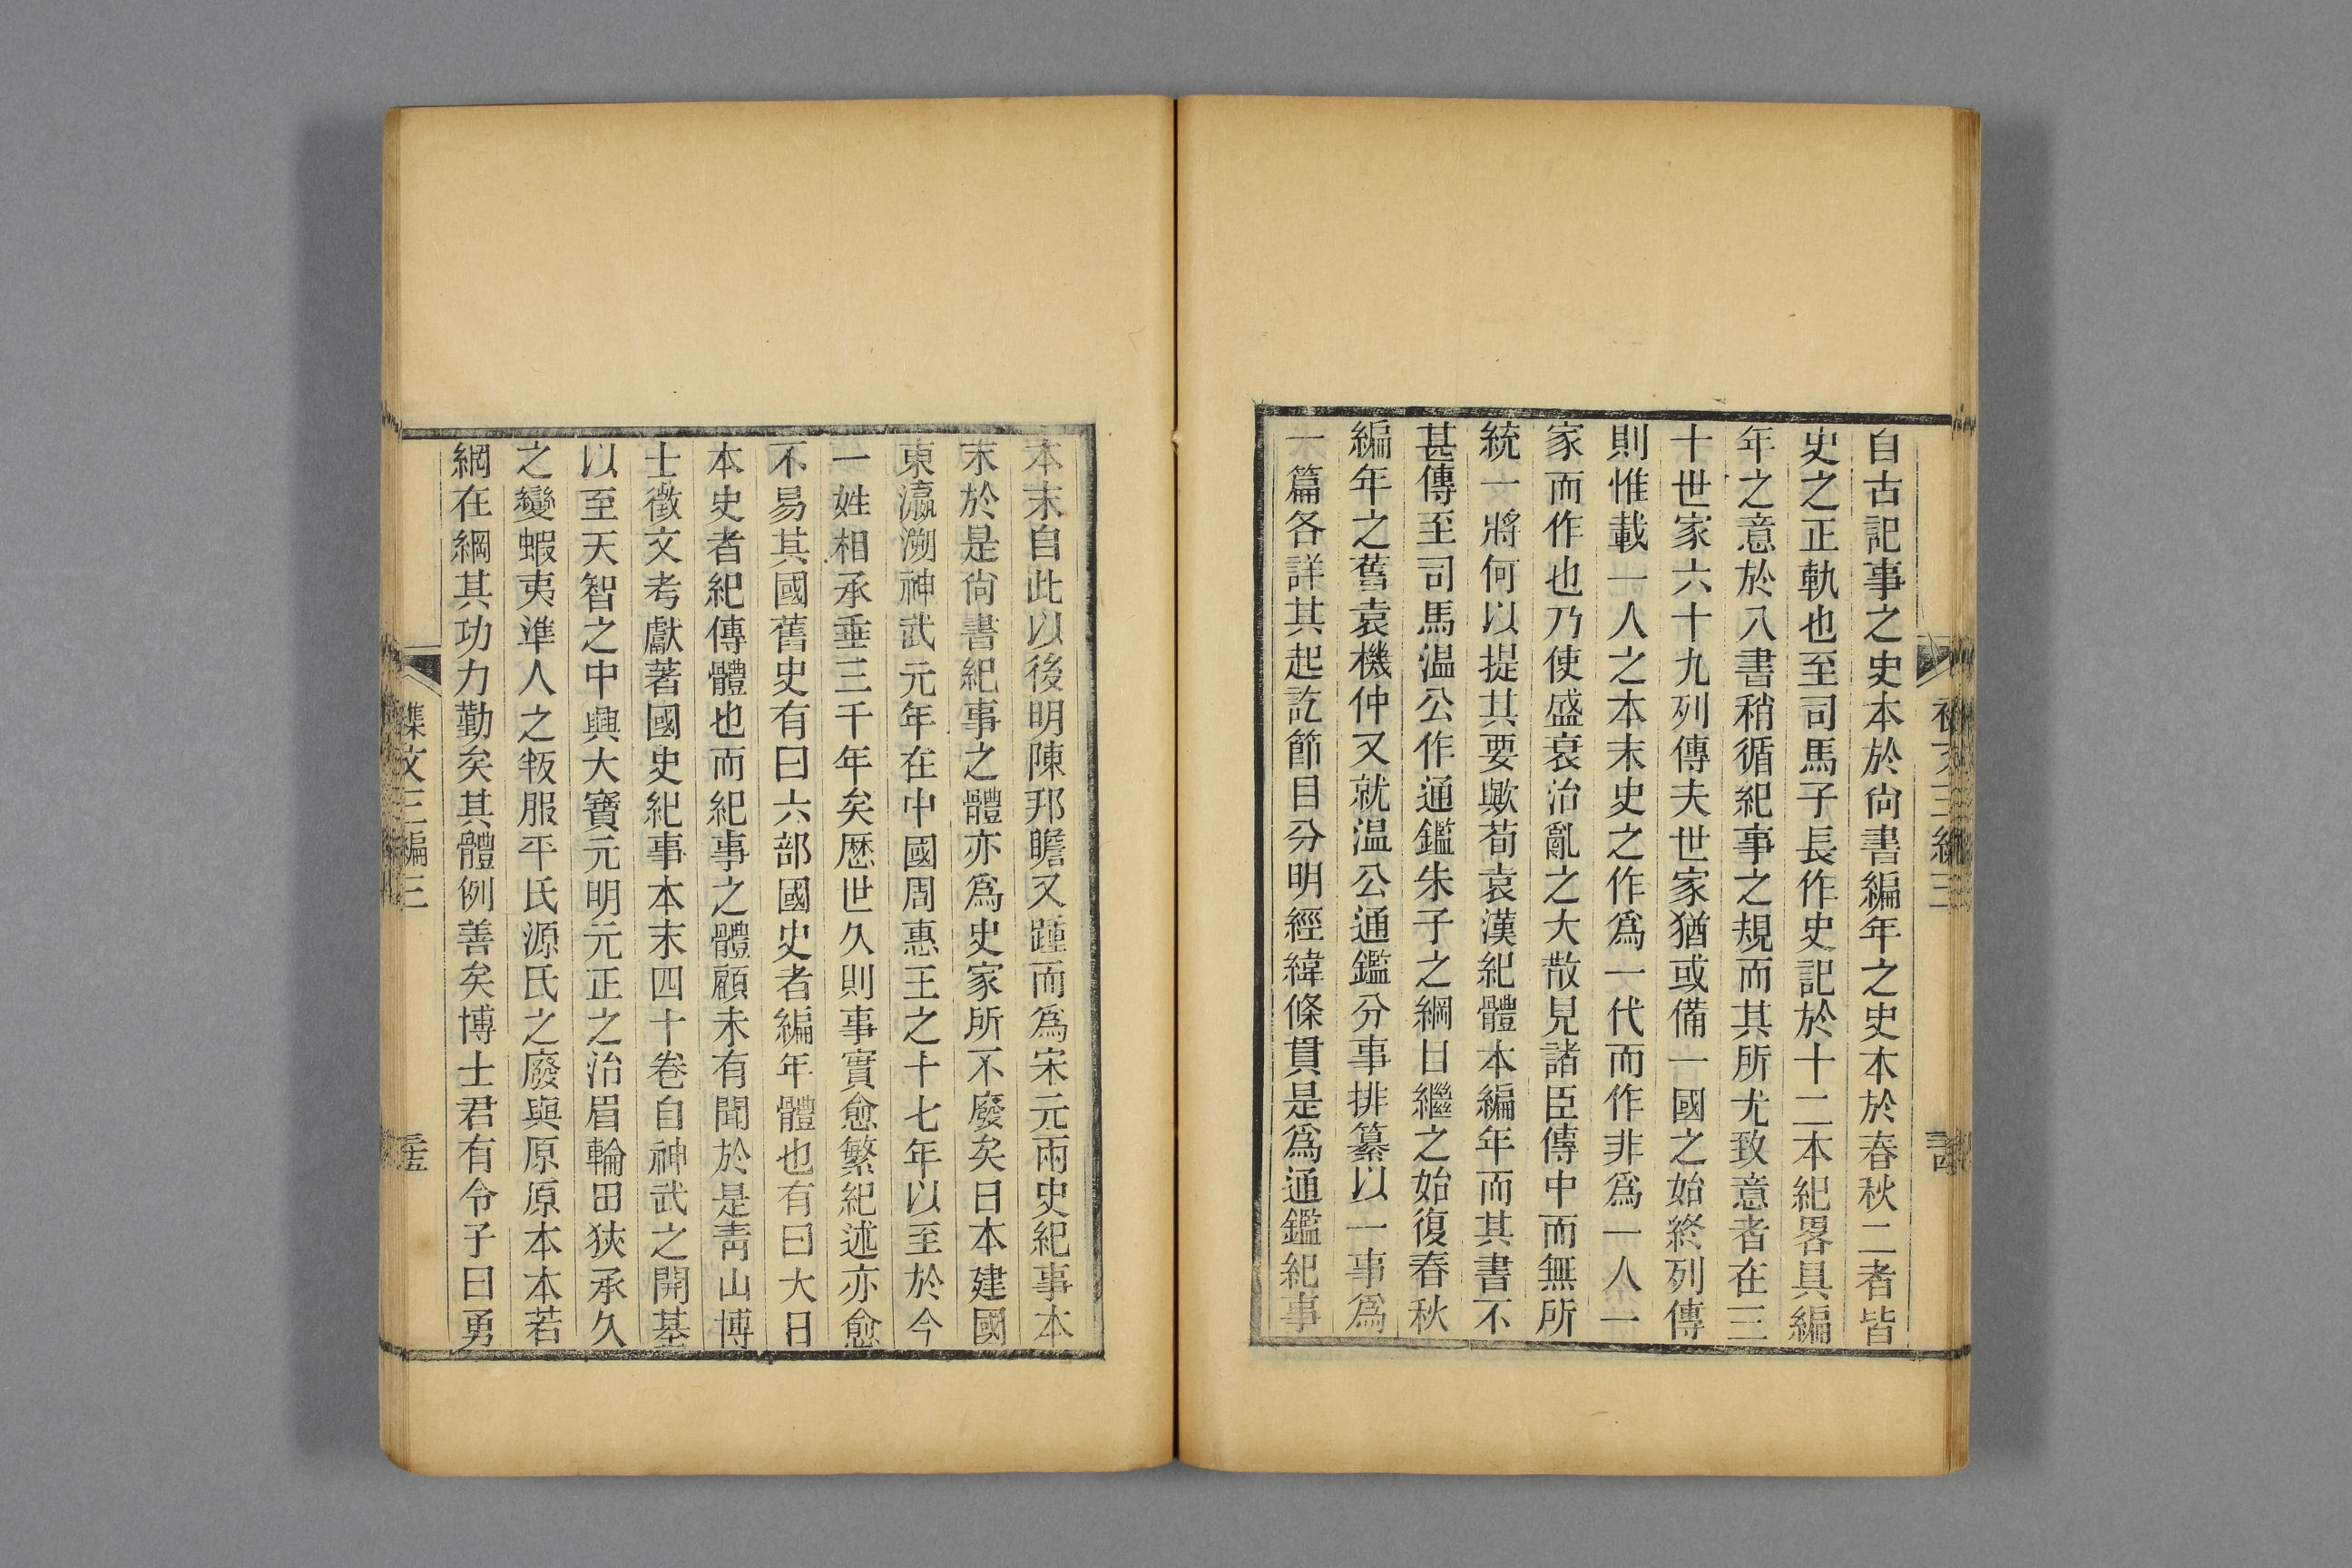 自古記事之史本於尙書編年之史本於春秋二者皆
史之正軌也至司馬子長作史記於十二本紀畧具編
年之意於八書稍循紀事之規而其所尤致意者在三
十世家六十九列傳夫世家猶或備一國之始終列傳
則惟載一人之本末史之作爲一代而作非爲一人一
家而作也乃使盛衰治亂之大散見諸臣傳中而無所
統一將何以提其要歟荀袁漢紀體本編年而其書不
甚傳至司馬温公作通鑑朱子之綱目繼之始復春秋
編年之舊袁機仲又就温公通鑑分事排纂以一事爲
一篇各詳其起訖節目分明經緯條貫是爲通鑑紀事
本末自此以後明陳邦瞻又踵而爲宋元兩史紀事本
末於是尙書紀事之體亦爲史家所不廢矣日本建國
東瀛溯神武元年在中國周惠王之十七年以至於今
一姓相承垂三千年矣歷世久則事實愈繁紀述亦愈
不易其國舊史有曰六部國史者編年體也有曰大日
本史者紀傳體也而紀事之體顧未有聞於是靑山博
士徵文考獻著國史紀事本末四十卷自神武之開基
以至天智之中興大寶元明元正之治眉輪田狹承久
之變蝦夷準人之叛服平氏源氏之廢興原原本本若
綱在綱其功力勤矣其體例善矣博士君有令子曰勇
雜文三編三